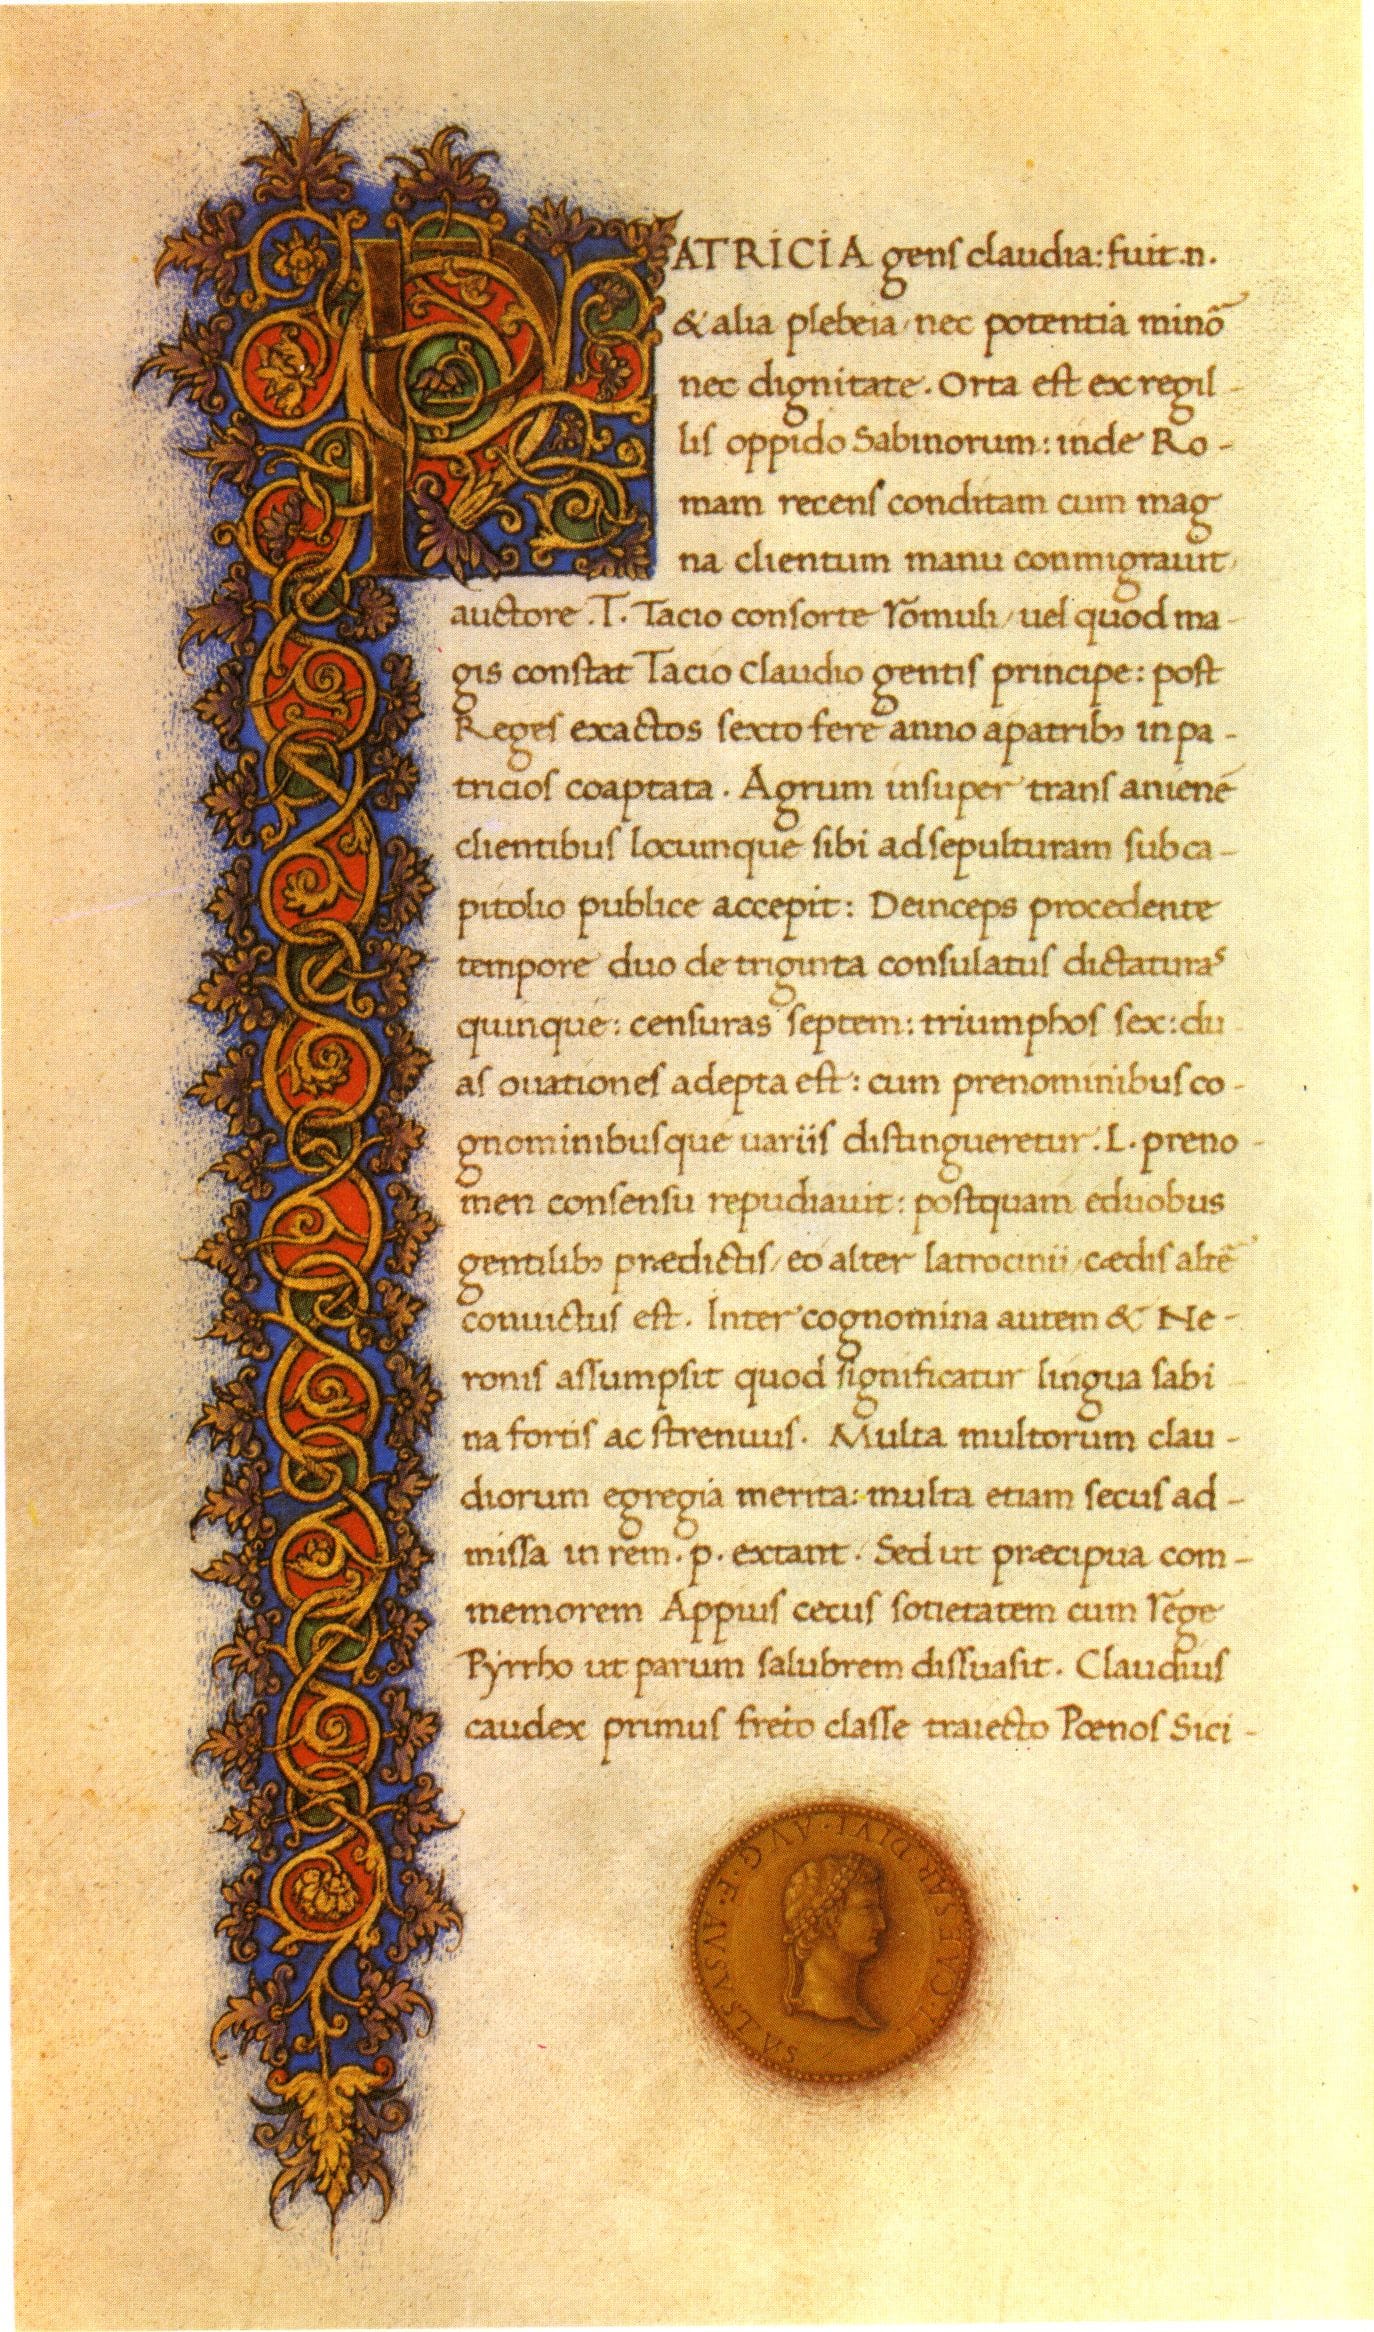 PATRICIA gens claudia: fuit .n.
& alia plebeia / nec potentia minõ
nec dignitate. Orta est ex regil-
lis oppido Sabinorum: inde Ro-
mam recens conditam cum mag
na clientum manu conmigrauit
auctore .T. Tacio consorte rõmuli / uel quod ma-
gis constat Tacio Claudio gentis principe: post
Reges exactos sexto fere anno apatribꝫ inpa-
tricios coaptata. Agrum insuper trans anienẽ
clientibus locumque sibi adsepulturam sub ca-
pitolio publice accepit: Deinceps procedente
tempore duo de triginta consulatus dictaturas
quinque: censuras septem: triumphos sex: du
as ouationes adepta est: cum prenominibus co-
gnominibusque uariis distingueretur. L. preno-
men consensu repudiauit: postquam eduobus
gentilibꝫ prædictis / eo alter latrocinii / cædis altẽ
conuictus est. Inter cognomina autem & Ne-
ronis assumpsit quod significatur lingua sabi-
na fortis ac strenuus. Multa multorum clau-
diorum egregia merita: multa etiam secus ad-
missa in rem .p. extant. Sed ut præcipua com-
memorem Appius cecus sotietatem cum rẽge
Pyrrho ut parum salubrem dissuasit. Claudius
caudex primus freto classe traiecto Pœnos Sici-
TI·CAESAR·DIVI·AVG·F·AVGVSTVS